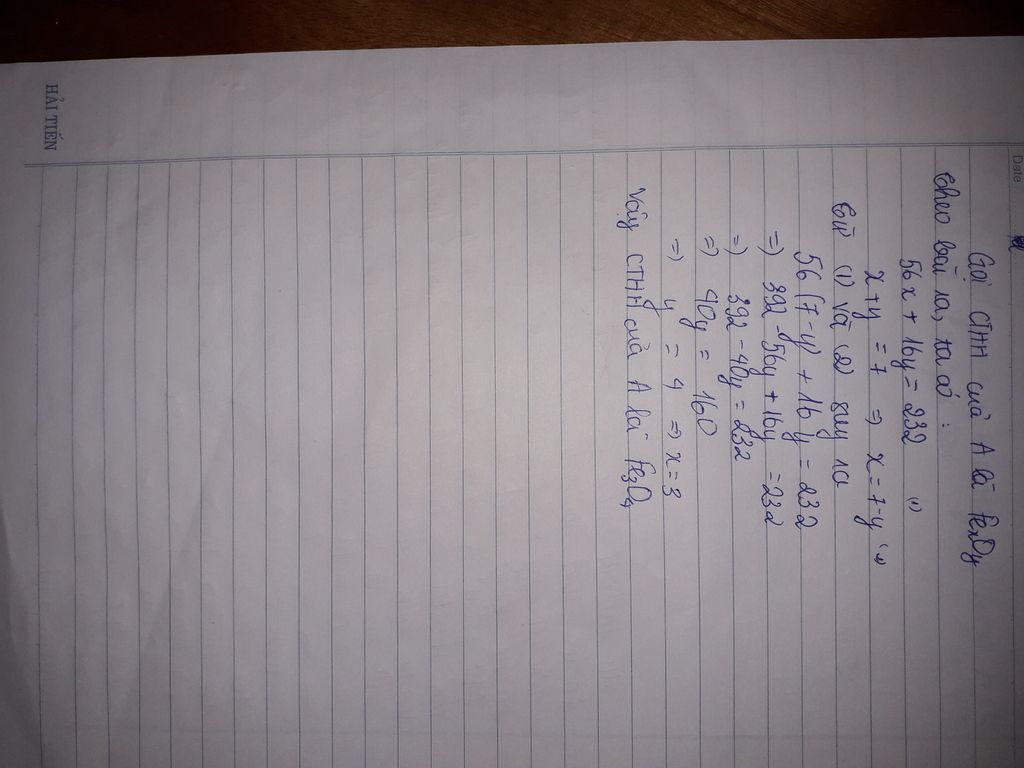 Date
Gọi CTHH của A là FexOy
theo bài ra, ta có :
56x + 16y = 232 (1)
x + y = 7 => x = 7-y (2)
từ (1) và (2) suy ra
56 (7-y) + 16y = 232
=) 392 - 56y + 16y = 232
=) 392 - 40y = 232
=) 40y = 160
=) y = 4 => x = 3
Vậy CTHH của A là Fe3O4
HẢI TIẾN